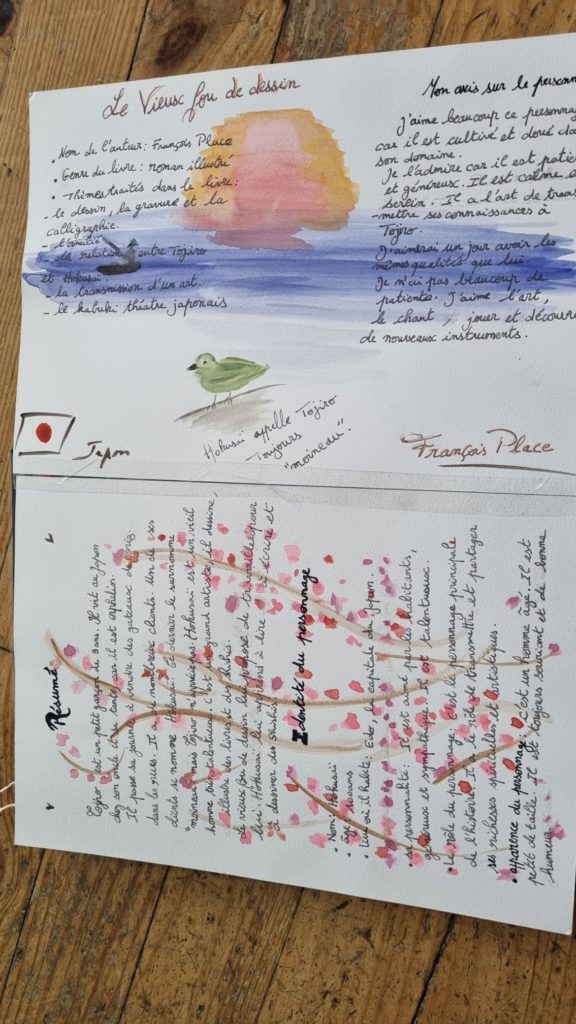 Le Vieux fou de dessin
• Nom de l'auteur: François Place
• Genre du livre: roman illustré
• Thèmes traités dans le livre:
- le dessin, la gravure et la
calligraphie.
- l'amitié
- la relation entre Tojiro
et Hokusaï.
- la transmission d'un art.
- le kabuki théatre japonais
Japon
Hokusaï appelle Tojiro
Toujours
"moineau".
Mon avis sur le personn
J'aime beaucoup ce personnag
car il est cultivé et doué da
son domaine.
Je l'admire car il est patie
et généreux. Il est calme e
serein. Il a l'art de trans
-mettre ses connaissances à
Tojiro.
J'aimerai un jour avoir les
mêmes qualités que lui.
Je n'ai pas beaucoup de
patiente. J'aime l'art,
le chant, jouer et découvri
de nouveaux instruments.
François Place
Résumé
Tojiro est un petit garçon de 9 ans. Il vit au Japon
chez son oncle et sa tante, car il est orphelin.
Il passe sa journée à vendre des gateaux de
dans les rues. Il a de nombreux clients. Un de ses
clients se nomme Hokusaï. Ce dernier le surnomme
"moineau" mais Tojiro n'apprécie pas. Hokusaï est un vieil
homme très talentueux. C'est un grand artiste: il dessine,
illustre des livres et des
Le vieux fou de dessin lui propose de travailler pour
lui. Hokusaï lui apprend à lire, à écrire et
à dessiner des
Identité du personnage
• Nom: Hokusaï
• âge:
• lieu où il habite: Edo, la capitale du Japon.
• sa personnalité: Il est aimé par les habitants,
généreux et sympathique. Il est talentueux.
• Le rôle du personnage: C'est le personnage principale
de l'histoire. Il a le rôle de transmettre et partager
ses richesses spirituelles et artistiques.
• apparence du personnage: C'est un homme âgé. Il est
petit de taille. Il est toujours souriant et de bonne
humeur.